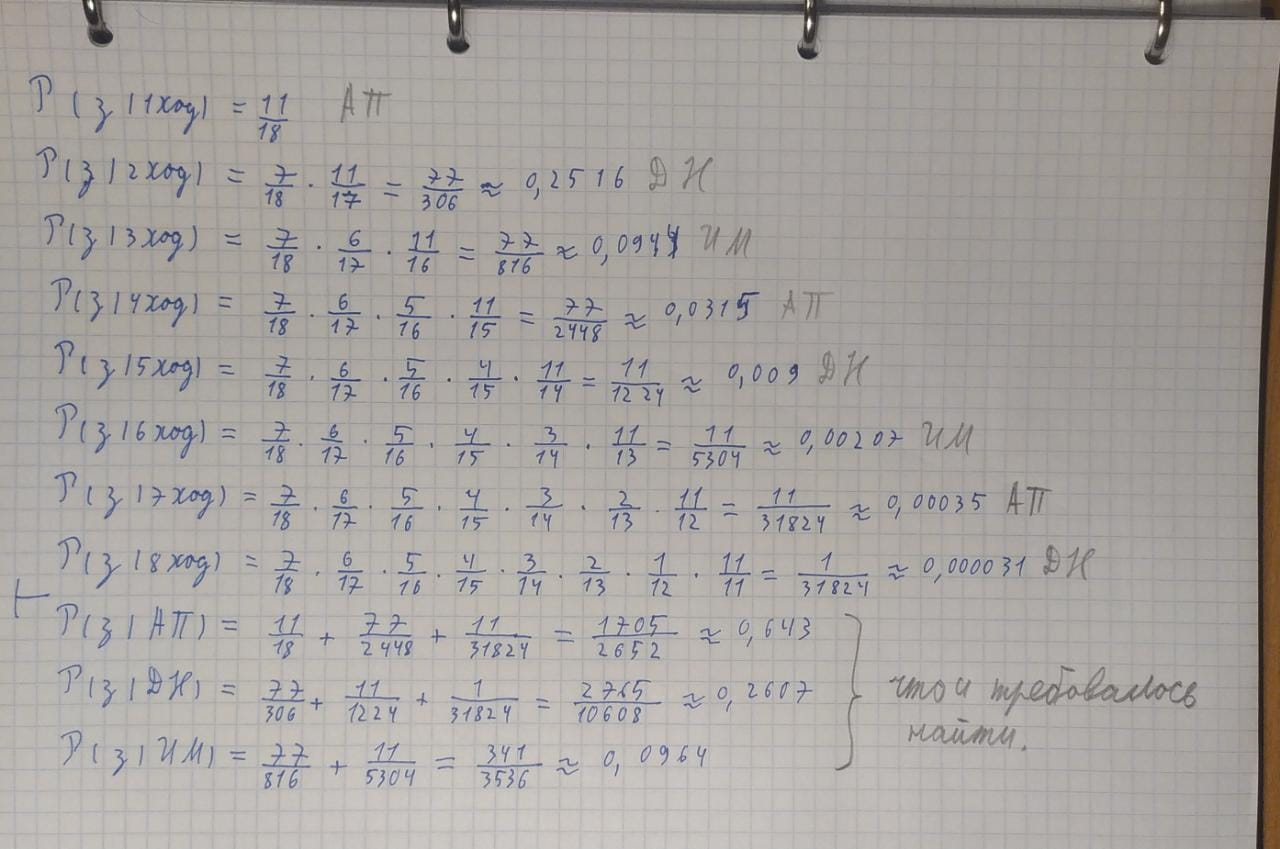 P(з|1ход) = 11/18 АП
P(з|2ход) = 7/18 · 11/17 = 77/306 ≈ 0,2516 ДН
P(з|3ход) = 7/18 · 6/17 · 11/16 = 77/816 ≈ 0,0944 ИМ
P(з|4ход) = 7/18 · 6/17 · 5/16 · 11/15 = 77/2448 ≈ 0,0315 АП
P(з|5ход) = 7/18 · 6/17 · 5/16 · 4/15 · 11/14 = 11/1224 ≈ 0,009 ДН
P(з|6ход) = 7/18 · 6/17 · 5/16 · 4/15 · 3/14 · 11/13 = 11/5304 ≈ 0,00207 ИМ
P(з|7ход) = 7/18 · 6/17 · 5/16 · 4/15 · 3/14 · 2/13 · 11/12 = 11/31824 ≈ 0,00035 АП
P(з|8ход) = 7/18 · 6/17 · 5/16 · 4/15 · 3/14 · 2/13 · 1/12 · 11/11 = 1/31824 ≈ 0,000031 ДН
P(з|АП) = 11/18 + 77/2448 + 11/31824 = 1705/2652 ≈ 0,643
P(з|ДН) = 77/306 + 11/1224 + 1/31824 = 2765/10608 ≈ 0,2607
P(з|ИМ) = 77/816 + 11/5304 = 341/3536 ≈ 0,0964
что и требовалось
найти.